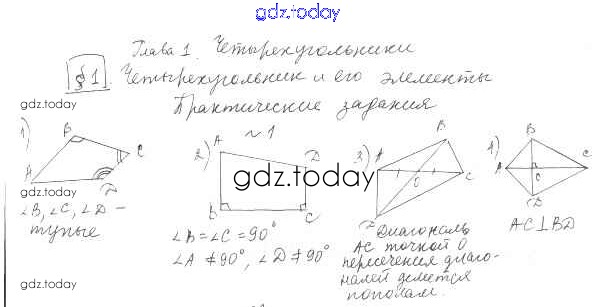 gdz.today
Глава 1. Четырехугольники
§1. Четырехугольник и его элементы
gdz.today
Практические задания
№1
1)
B
C
A
D
gdz.today
∠B, ∠C, ∠D -
тупые
2)
A
D
B
C
∠B = ∠C = 90°
∠A ≠ 90°, ∠D ≠ 90°
gdz.today
3)
B
A
O
C
D
Диагональ
AC точкой O
пересечения диаго-
налей делится
пополам.
4)
B
A
C
D
AC⊥BD
gdz.today
gdz.today